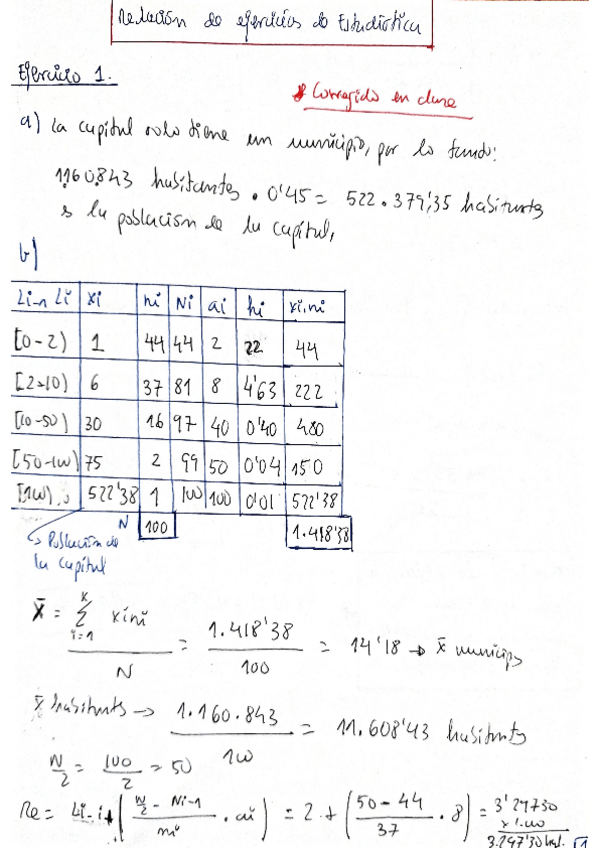 Relación de ejercicios de Estadística
Ejercicio 1.
* Corregido en clase
a) La capital solo tiene un municipio, por lo tanto:
1.160.843 habitantes · 0'45 = 522.379'35 habitantes
es la población de la capital,
b)
Li-1 Li xi ni Ni ai hi xi·ni
[0-2) 1 44 44 2 22 44
[2-10) 6 37 81 8 4'63 222
[10-50) 30 16 97 40 0'40 480
[50-100) 75 2 99 50 0'04 150
[100), 522'38 1 100 100 0'01 522'38
N 100 1.418'38
↳ Población de
la capital
x̄ = Σ(i=1, k) xi ni / N = 1.418'38 / 100 = 14'18 → x̄ municip
x̄ habitants → 1.160.843 / 100 = 11.608'43 habitants
N/2 = 100/2 = 50
Me = Li-1 + ( N/2 - Ni-1 / ni · ai ) = 2 + ( 50-44 / 37 · 8 ) = 3'29730
x 1.000
3.297'30 hab.